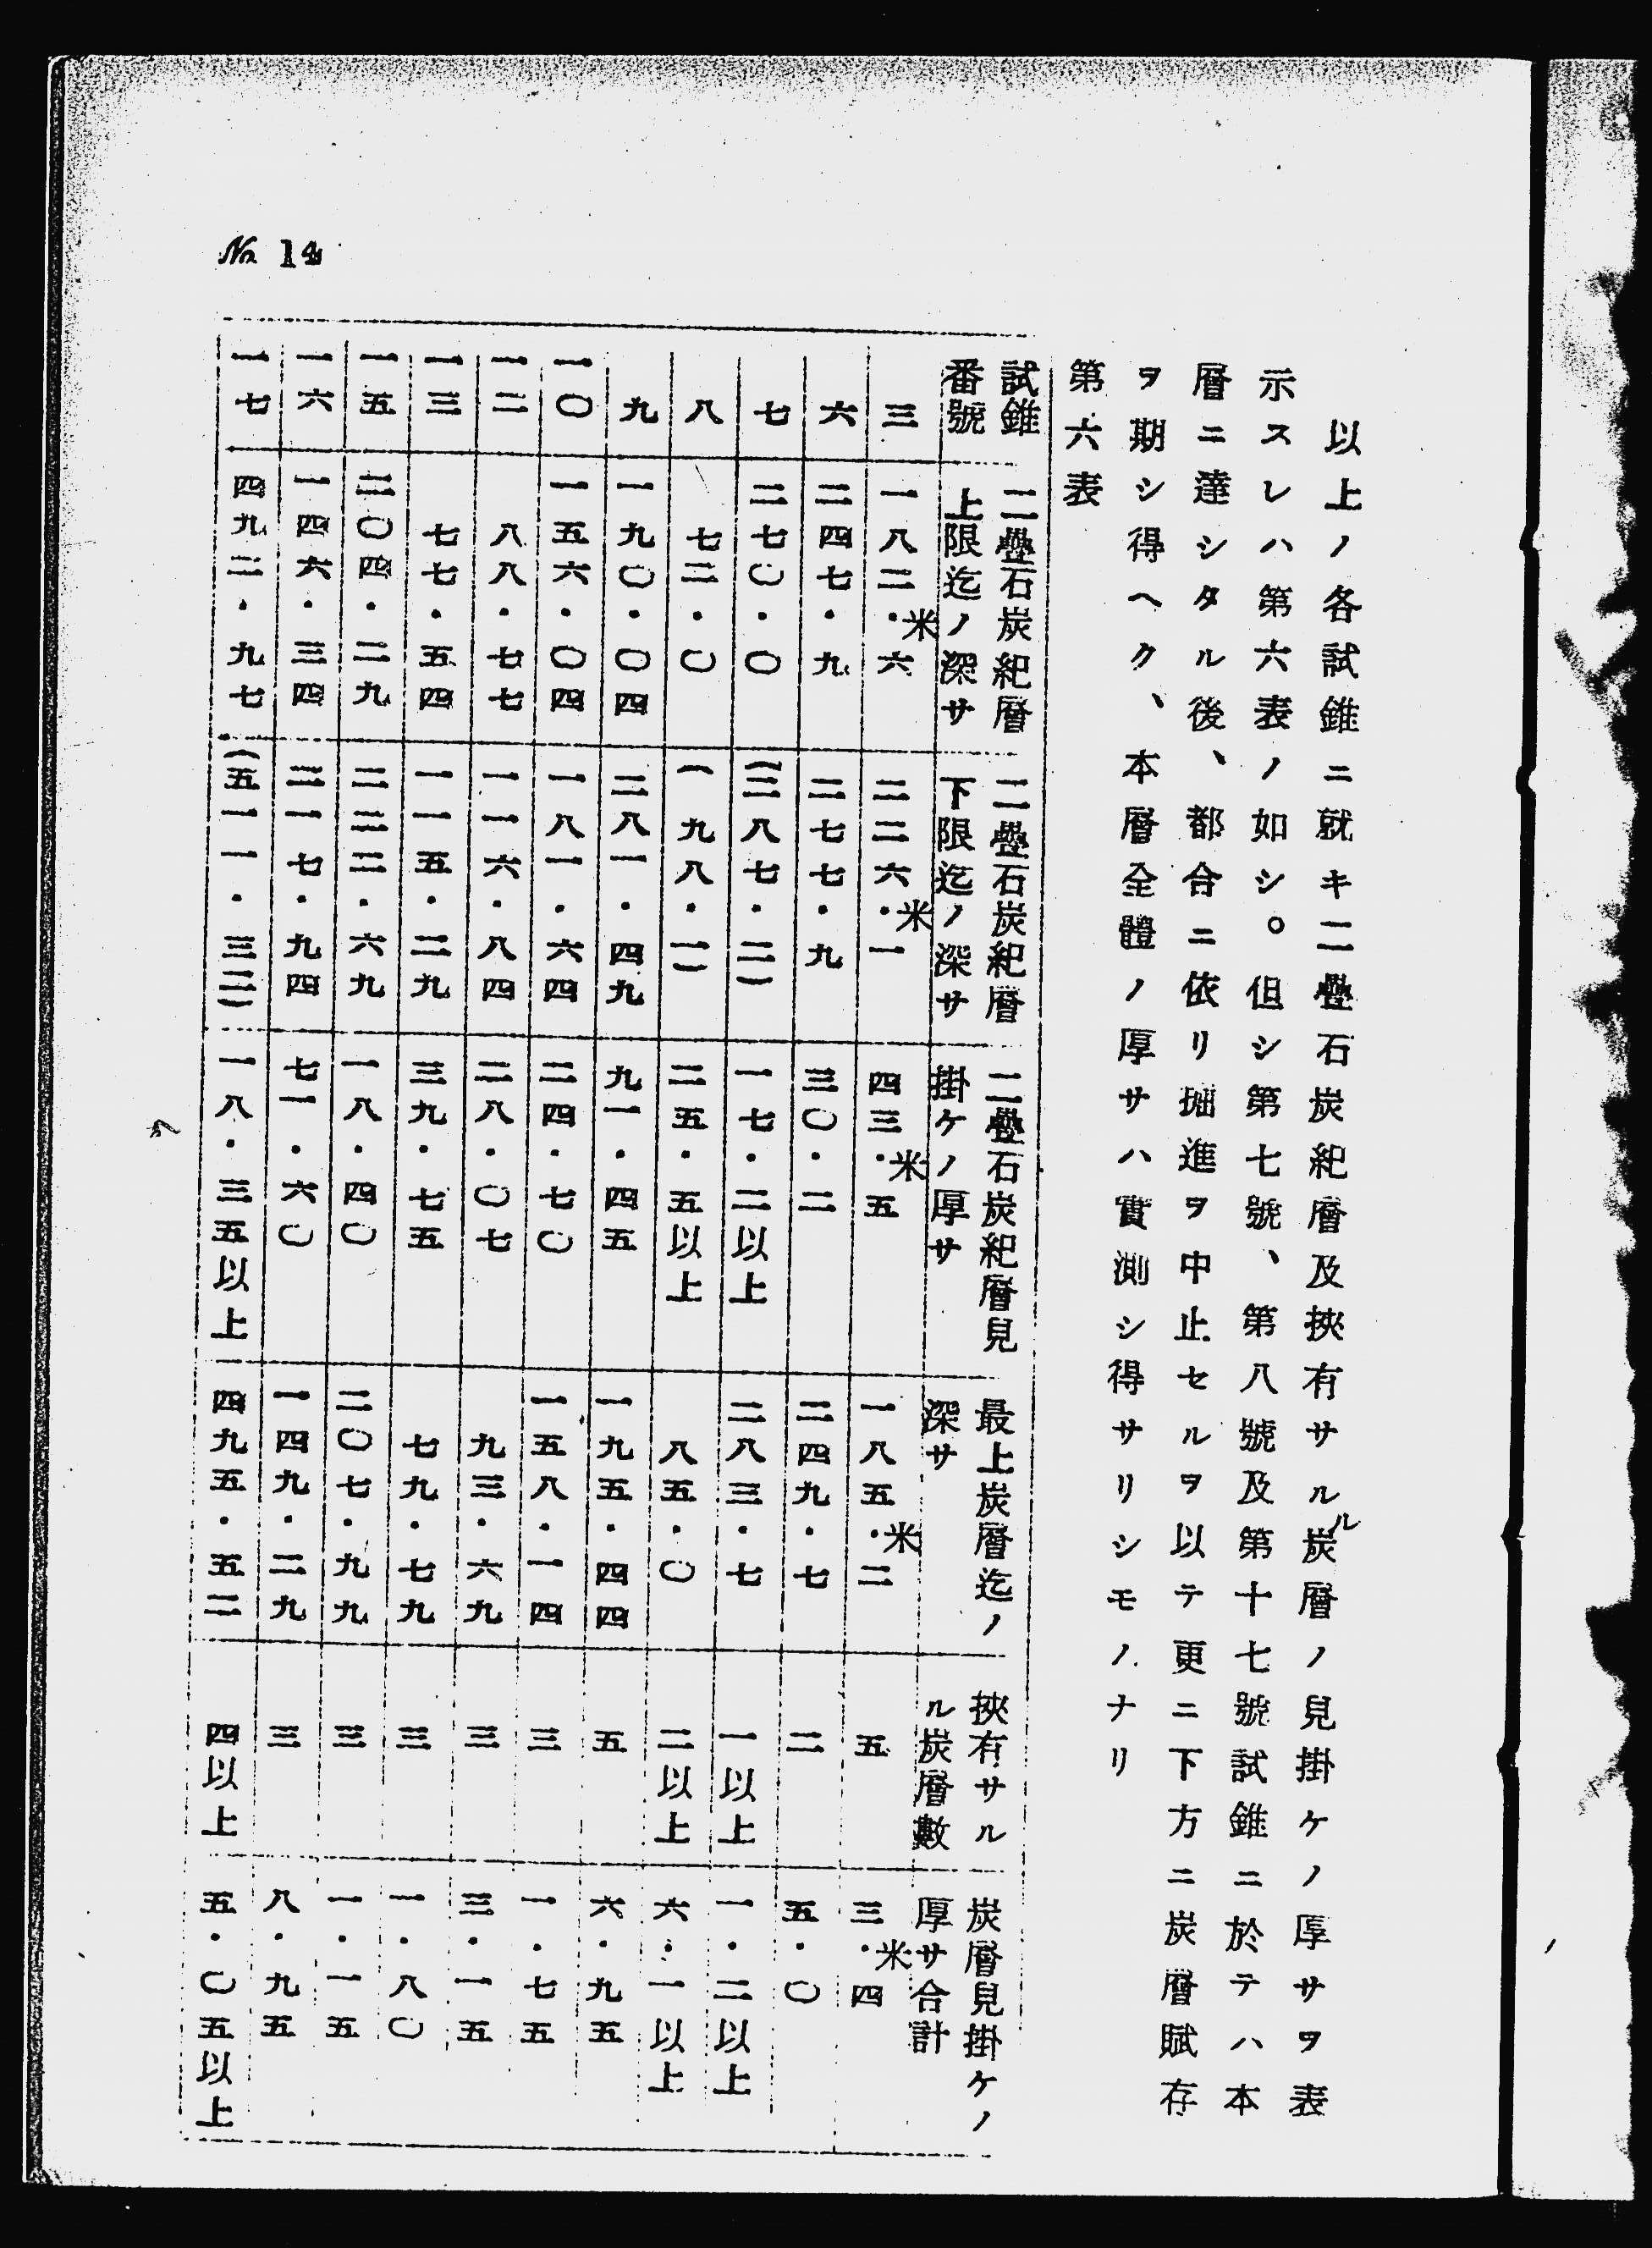 以上ノ各試錐ニ就キ二疊石炭紀層及挾有サルル炭層ノ見掛ケノ厚サヲ表
示スレハ第六表ノ如シ。但シ第七號、第八號及第十七號試錐ニ於テハ本
層ニ達シタル後、都合ニ依リ掘進ヲ中止セルヲ以テ更ニ下方ニ炭層賦存
ヲ期シ得ヘク、本層全體ノ厚サハ實測シ得サリシモノナリ
第六表
試錐 二疊石炭紀層 二疊石炭紀層 二疊石炭紀層見 最上炭層迄ノ 挾有サル 炭層見掛ケノ
番號 上限迄ノ深サ 下限迄ノ深サ 掛ケノ厚サ 深サ ル炭層數 厚サ合計
三 一八二・米六 二二六・米一 四三・米五 一八五・米二 五 三・米四
六 二四七・九 二七七・九 三〇・二 二四九・七 二 五・〇
七 二七〇・〇 (二八七・二) 一七・二以上 二八三・七 一以上 一・二以上
八 七二・〇 (九八・一) 二五・五以上 八五・〇 二以上 六・一以上
九 一九〇・〇四 二八一・四九 九一・四五 一九五・四四 五 六・九五
一〇 一五六・〇四 一八一・六四 二四・七〇 一五八・一四 三 一・七五
一二 八八・七七 一一六・八四 二八・〇七 九三・六九 三 三・一五
一三 七七・五四 一一五・二九 三九・七五 七九・七九 三 一・八〇
一五 二〇四・二九 二二二・六九 一八・四〇 二〇七・九九 三 一・一五
一六 一四六・三四 二一七・九四 七一・六〇 一四九・二九 三 八・九五
一七 四九二・九七 (五一一・三二) 一八・三五以上 四九五・五二 四以上 五・〇五以上
№ 14